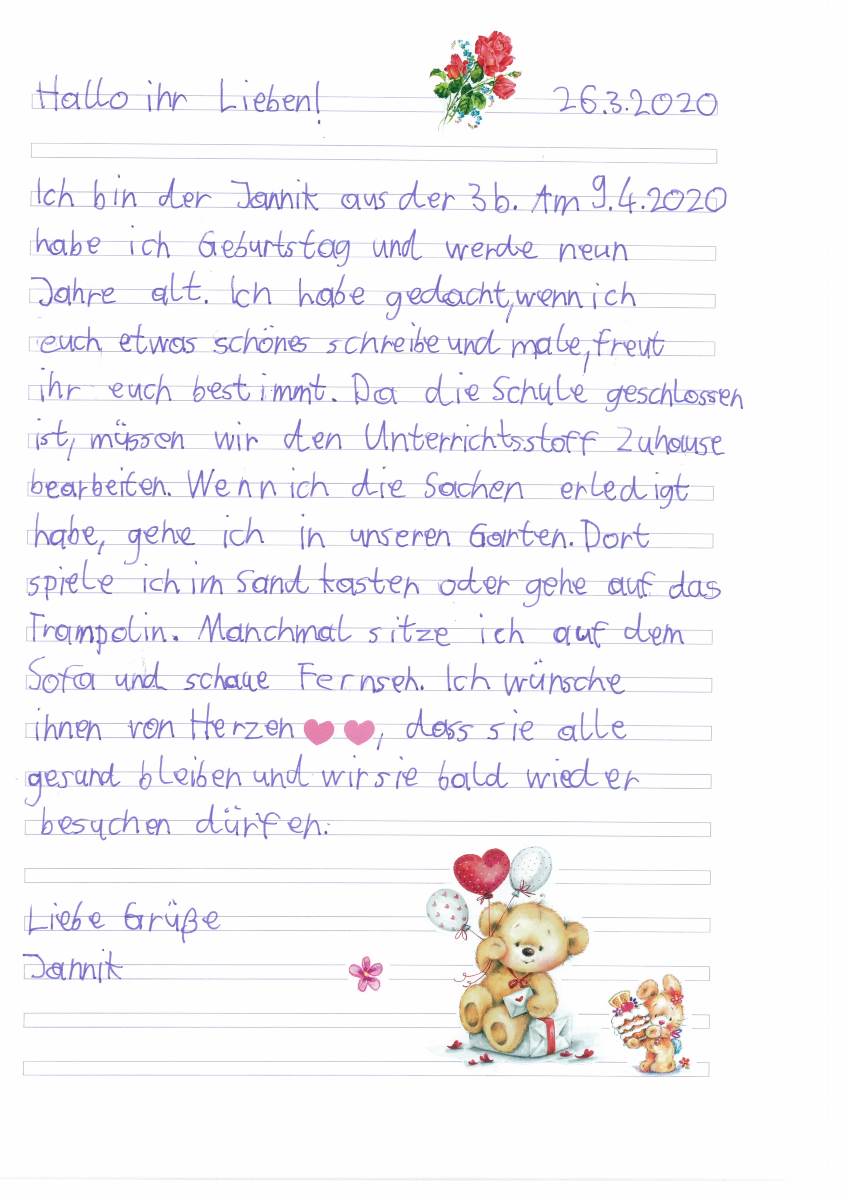 Hallo ihr Lieben! 26.3.2020
Ich bin der Jannik aus der 3b. Am 9.4.2020
habe ich Geburtstag und werde neun
Jahre alt. Ich habe gedacht, wenn ich
euch etwas schönes schreibe und male, freut
ihr euch bestimmt. Da die Schule geschlossen
ist, müssen wir den Unterrichtsstoff Zuhause
bearbeiten. Wenn ich die Sachen erledigt
habe, gehe ich in unseren Garten. Dort
spiele ich im Sandkasten oder gehe auf das
Trampolin. Manchmal sitze ich auf dem
Sofa und schaue Fernseh. Ich wünsche
ihnen von Herzen, dass sie alle
gesund bleiben und wir sie bald wieder
besuchen dürfen.
Liebe Grüße
Jannik